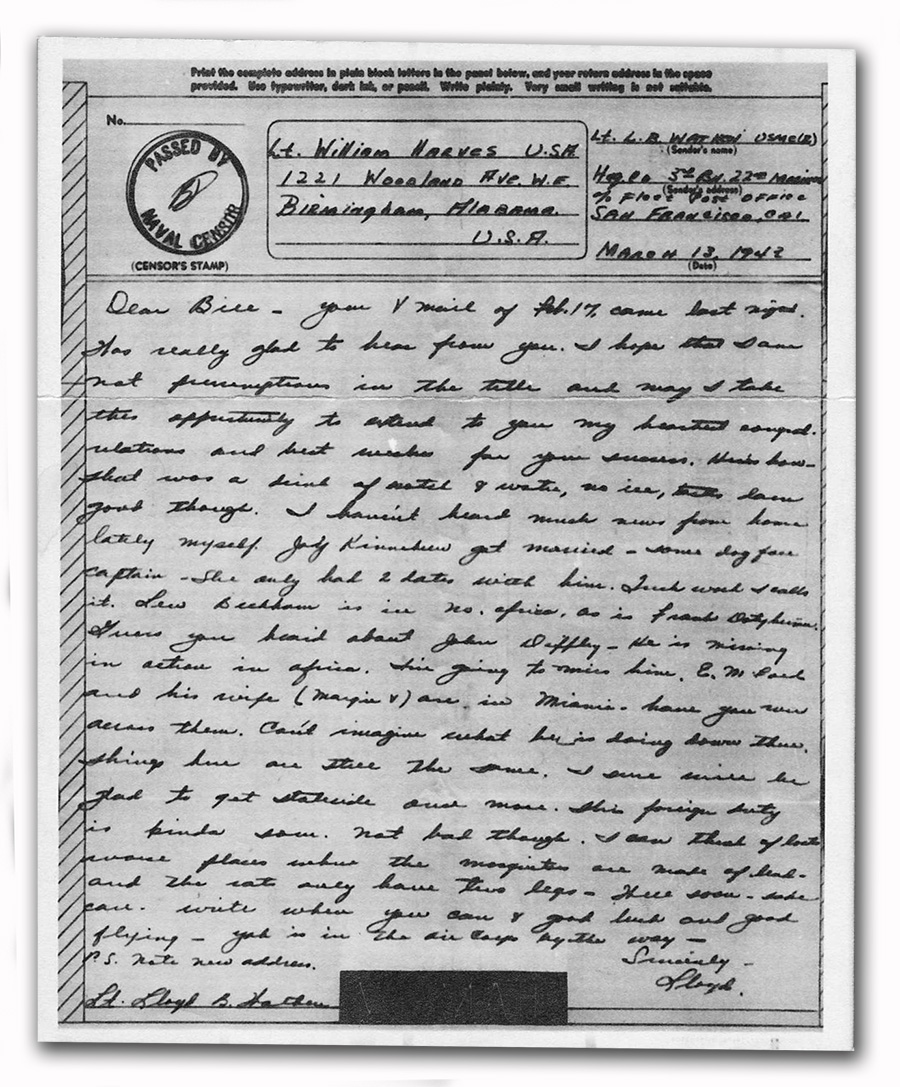 Print the complete address in plain block letters in the panel below, and your return address in the space
provided. Use typewriter, dark ink, or pencil. Write plainly. Very small writing is not suitable.
No.
PASSED BY
NAVAL CENSOR
(CENSOR'S STAMP)
Lt. William Harves U.S.A
1221 Woodland Ave. W.E
Birmingham, Alabama.
U.S.A.
Lt. L. B. USMC(R)
(Sender's name)
Hqs Co 3rd Bn. 22nd Marines
(Sender's address)
% Fleet Post Office
San Francisco, Cal
March 13, 1943
(Date)
Dear Bill - your V mail of Feb. 17, came last night.
Was really glad to hear from you. I hope that I am
not presumptious in the title and may I take
this opportunity to extend to you my heartiest congrat-
ulations and best wishes for your success. Here's how-
that was a drink of scotch & water, no ice, tastes damn
good though. I haven't heard much news from home
lately myself. Kinnebrew got married - some dog face
captain - She only had 2 dates with him. Quick work I calls
it. Lew Beckham is in no. africa, as is Frank
Guess you heard about John - He is missing
in action in africa. I'm going to miss him. E. M.
and his wife (Margie V) are in Miami - have you run
across them. Can't imagine what he is doing down there.
things here are still the same. I sure will be
glad to get stateside once more. This foreign duty
is kinda sour. Not bad though. I can think of lots
worse places where the mosquitos are made of lead -
and the rats only have two legs - There soon - take
care. write when you can & good luck and good
flying - yah is in the air corps by the way -
Sincerely -
P.S. Note new address.
Lloyd.
Lt. Lloyd B.